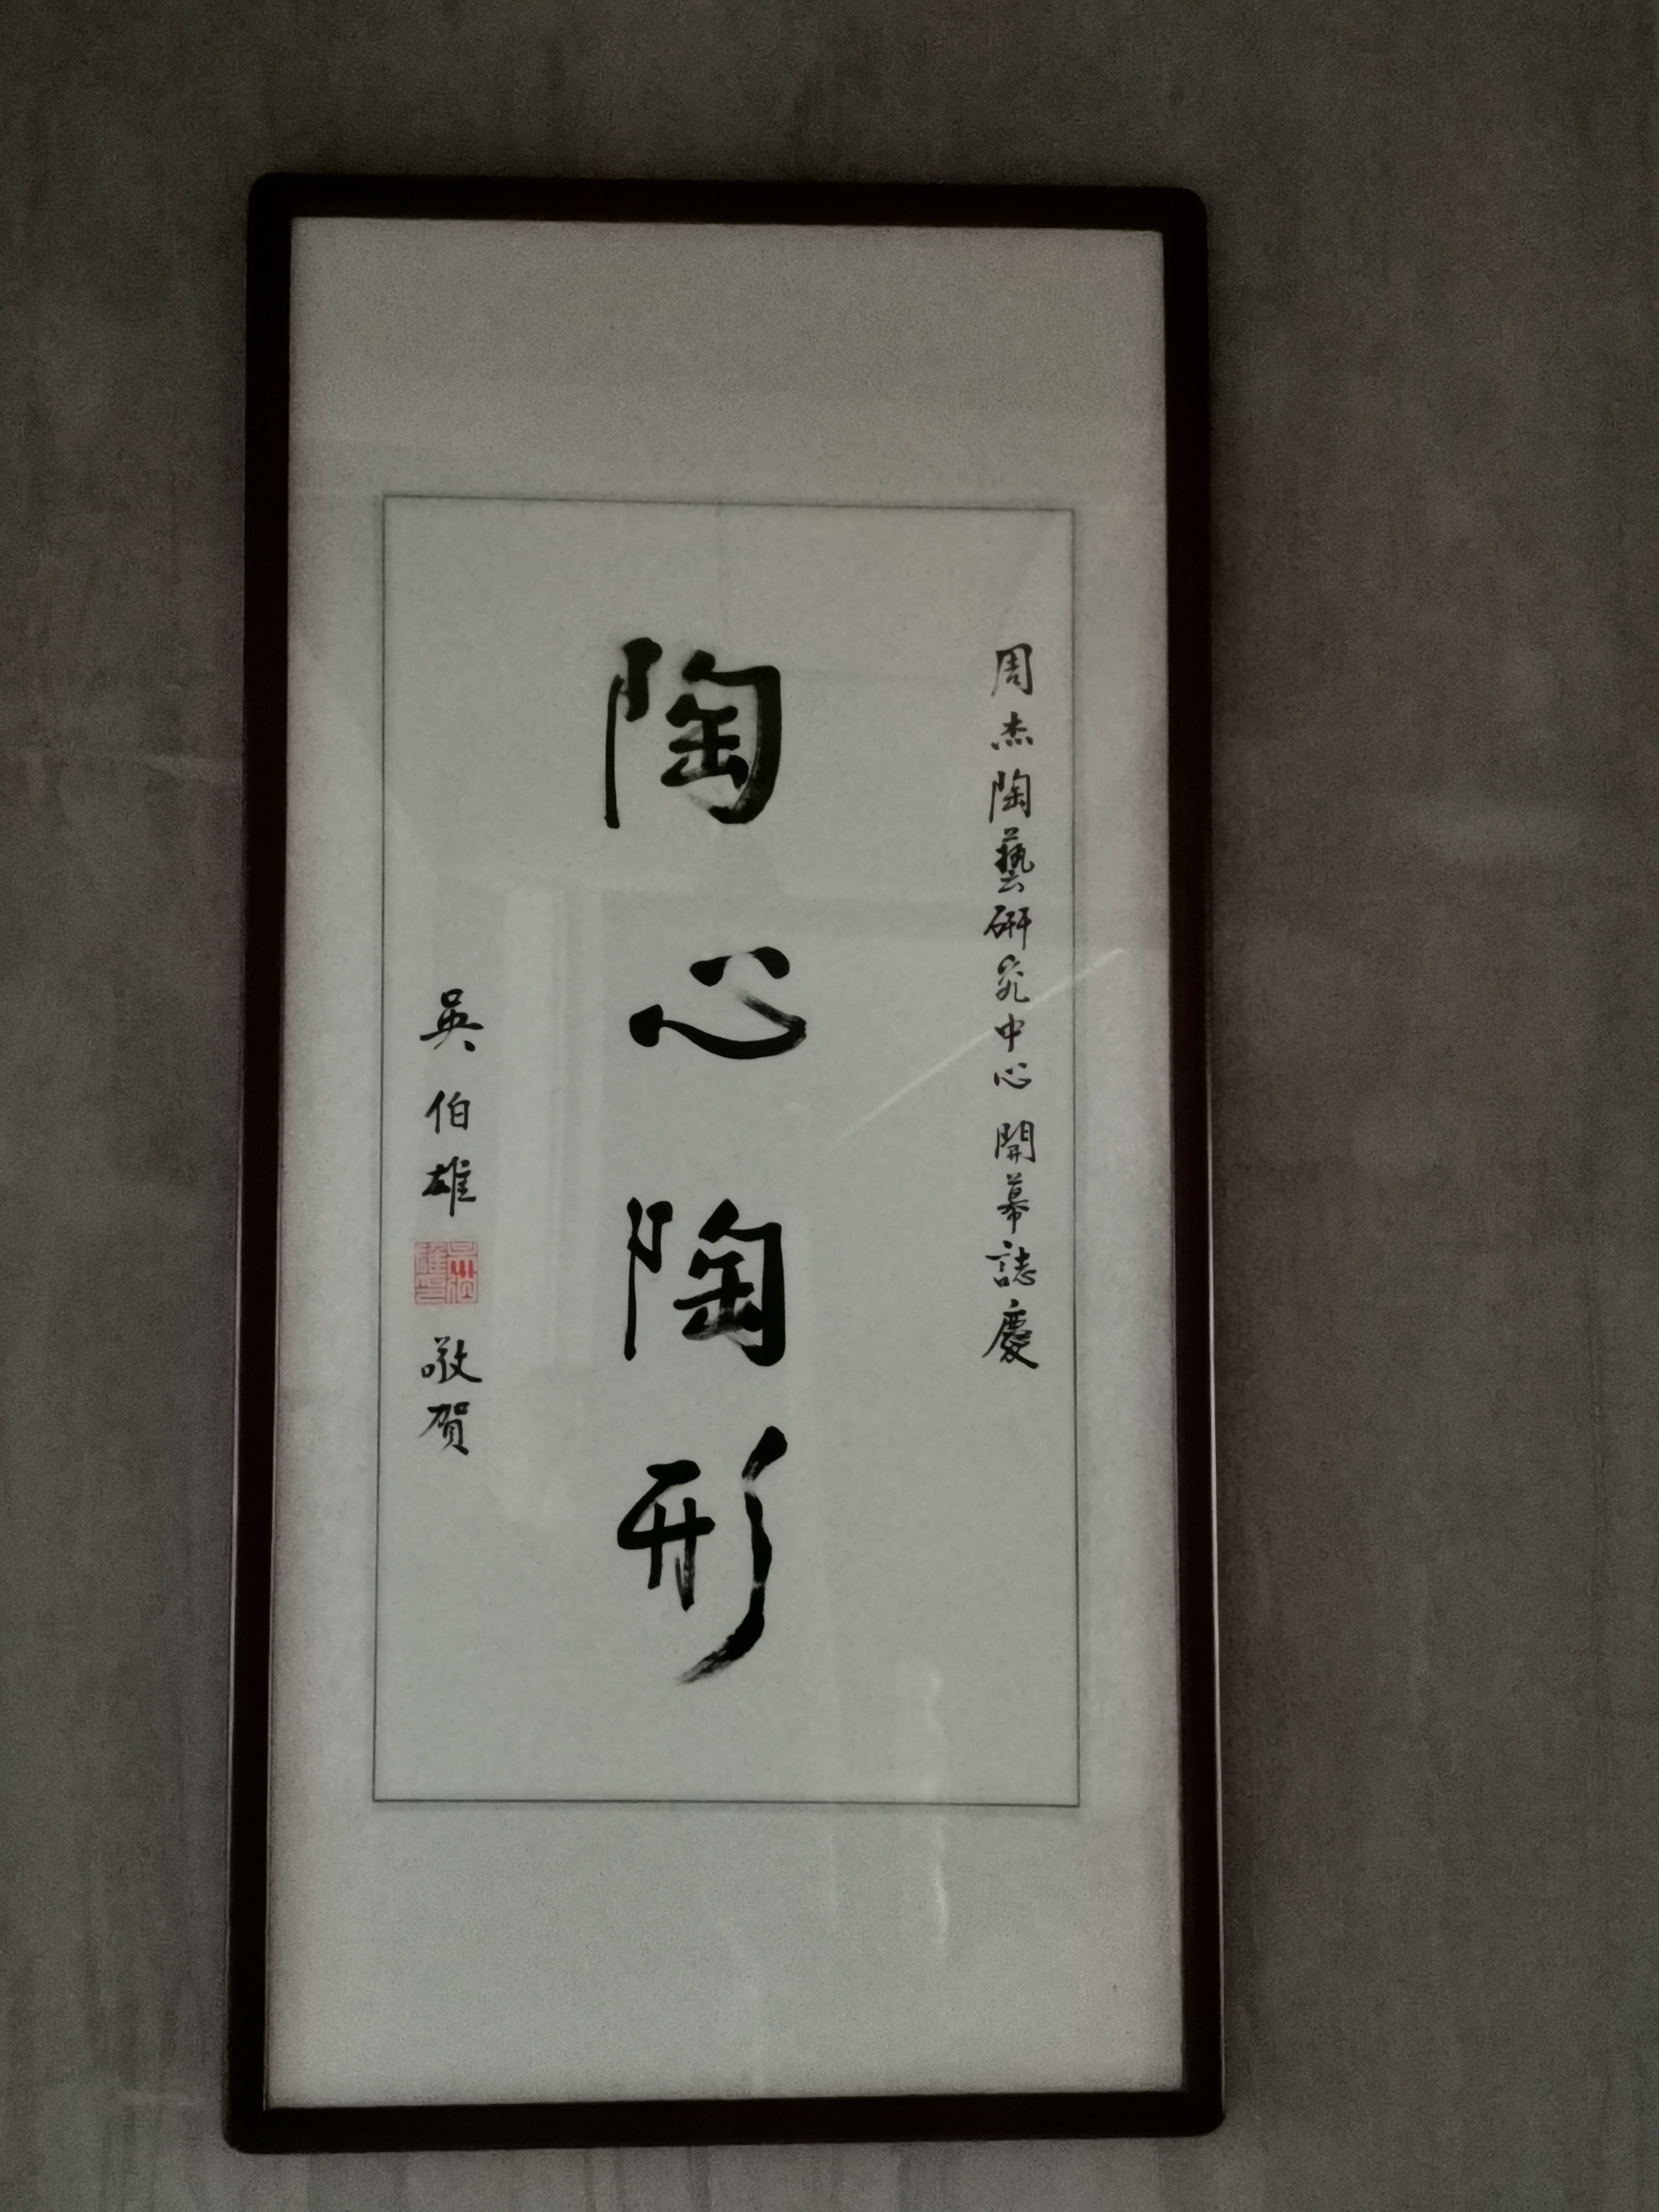 周杰陶藝研究中心 開幕誌慶
陶心陶形
吳伯雄 敬賀